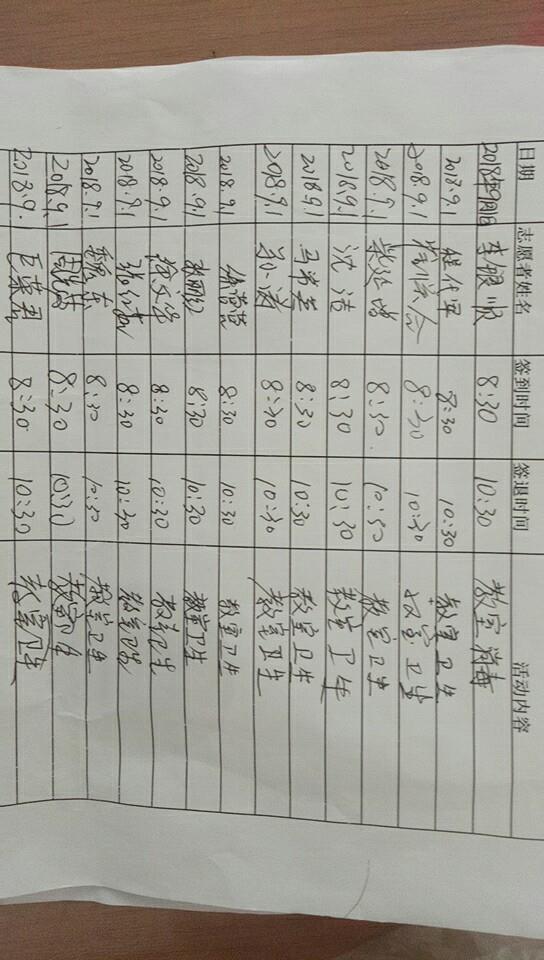 日期 志愿者姓名 签到时间 签退时间 活动内容
2018年9月1日 李银顺 8:30 10:30 教室消毒
2018.9.1 程代军 8:30 10:30 教室卫生
2018.9.1 8:30 10:30 教室卫生
2018.9.1 8:30. 10:30 教室卫生
2018.9.1 沈洁 8:30 10:30 教室卫生
2018 9.1 8:30 10:30 教室卫生
2018 9.1 8:30 10:30 教室卫生
2018.9.1 8:30 10:30 教室卫生
2018.9.1 8:30 10:30 教室卫生
2018.9.1 8:30 10:30 教室卫生
2018.9.1 8:30 10:30 教室卫生
2018.9.1 8:30 10:30 教室卫生
2018.9.1 8:30 10:30 教室卫生
2018.9.1 8:30 10:30 教室卫生